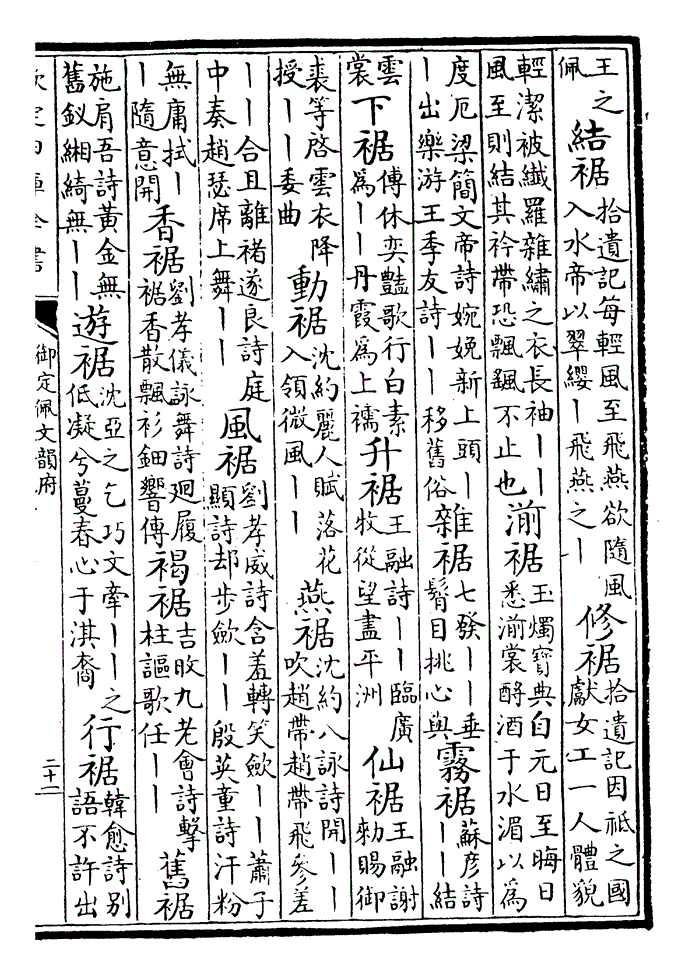 王之佩 結裾 拾遺記每輕風至飛燕欲隨風入水帝以翠纓丨飛燕之丨 修裾 拾遺記因祗之國獻女工一人體貌
輕潔被纖羅雜繡之衣長袖丨丨風至則結其衿帶恐飄颻不止也 湔裾 玉燭寶典自元日至晦日悉湔裳酹酒于水湄以為
度厄梁簡文帝詩婉娩新上頭丨丨出樂游王季友詩丨丨移舊俗 雜裾 七發丨丨垂髾目挑心與 霧裾 蘇彥詩丨丨結
雲裳 下裾 傳休奕豔歌行白素為丨丨丹霞為上襦 升裾 王融詩丨丨臨廣牧從望盡平洲 仙裾 王融謝勑賜御
裘等啓雲衣降授丨丨委曲 動裾 沈約麗人賦落花入領微風丨丨 燕裾 沈約八詠詩開丨丨吹趙帶趙帶飛參差
丨丨合且離褚遂良詩庭中奏趙瑟席上舞丨丨 風裾 劉孝威詩含羞轉笑歛丨丨蕭子顯詩却步歛丨丨殷英童詩汗粉
無庸拭丨丨隨意開 香裾 劉孝儀詠舞詩廻履裾香散飄衫鈿響傳 褐裾 吉旼九老會詩擊柱謳歌任丨丨 舊裾
施肩吾詩黃金無舊釵緗綺無丨丨 遊裾 沈亞之乞巧文牽丨丨之低凝兮蔓春心于淇裔 行裾 韓愈詩別語不許出
欽定四庫全書 御定佩文韻府 二十二